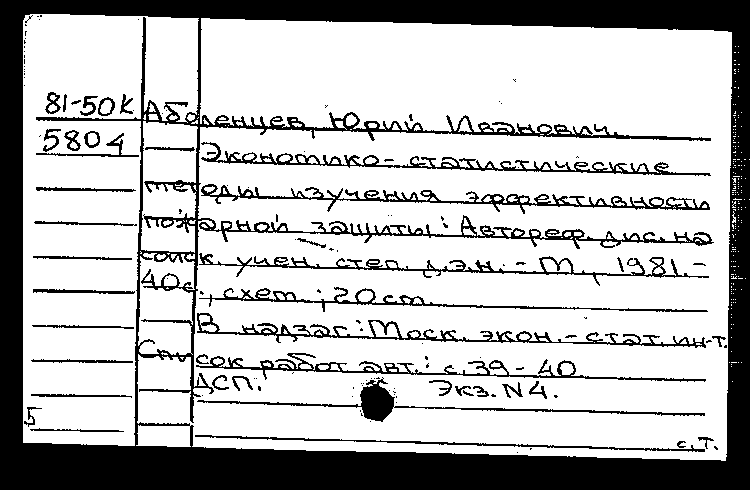 81-50К Аболенцев, Юрий Иванович.
5804
Экономико-статистические
методы изучения эффективности
пожарной защиты: Автореф. дис. на
соиск. учен. степ. д.э.н. - М., 1981. -
40с., схем.; 20 см.
В надзаг.: Моск. экон.-стат. ин-т.
Список работ авт.: с. 39-40
ДСП. Экз. N4.
5
с.т.